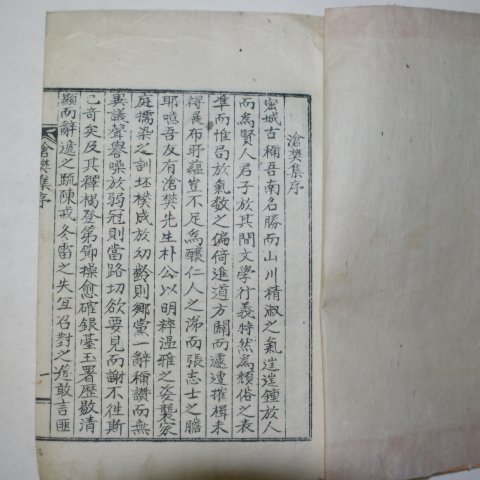 滄樊集序
密城古稱吾南名勝而山川精淑之氣往往鍾於人
而為賢人君子於其間文學行義特然為頹俗之表
準而惟局於氣數之偏倚進道方闢而遽遭摧楫未
得展布所蘊豈不足為酸仁人之涕而張志士之膽
耶噫吾友有滄樊先生朴公以明粹溫雅之姿襲家
庭擩染之訓坯樸成於幼齡則鄉黨一辭稱讚而無
異議聲譽噪於弱冠則當路切欲要見而謝不往斯
已奇矣及其釋褐登第節操愈確銀臺玉署歷敭清
顯而辭遞之疏陳戒冬雷之失宜召對之筵敢言匪
滄樊集序